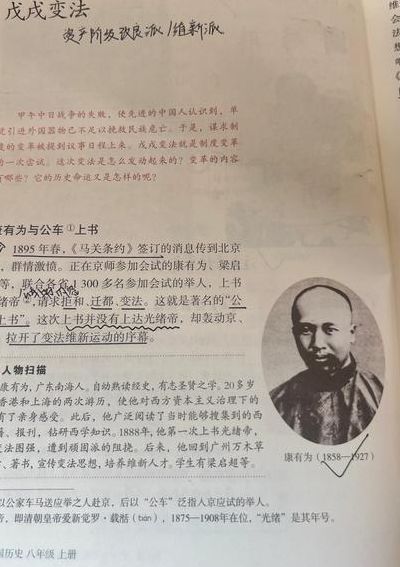 戊戌变法
资产阶级改良派/维新派
甲午中日战争的失败，使先进的中国人认识到，单
引进外国器物已不足以挽救民族危亡。于是，谋求制
度的变革被提到议事日程上来。戊戌变法就是制度变革
的一次尝试。这次变法是怎么发动起来的？变革的内容
有哪些？它的历史命运又是怎样的呢？
康有为与公车①上书
1895年春，《马关条约》签订的消息传到北京
，群情激愤。正在京师参加会试的康有为、梁启
等，联合各省1 300多名参加会试的举人，上书
绪帝，请求拒和、迁都、变法。这就是著名的“公
上书”。这次上书并没有上达光绪帝，却轰动京、
拉开了变法维新运动的序幕。
人物扫描
康有为，广东南海人。自幼熟读经史，有志圣贤之学。20多岁
香港和上海的两次游历，使他对西方资本主义治理下的
有了亲身感受。此后，他广泛阅读了当时能够搜集到的西
、报刊，钻研西学知识。1888年，他第一次上书光绪帝，
变法图强，遭到顽固派的阻挠。后来，他回到广州万木草
、著书，宣传变法思想，培养维新人才。学生有梁启超等。
康有为（1858—1927）
以公家车马送应举之人赴京，后以“公车”泛指入京应试的举人。
帝，即清朝皇帝爱新觉罗·载湉（tián），1875—1908年在位，“光绪”是其年号。
国历史 八年级 上册